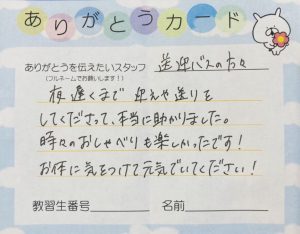 ありがとうカード
ありがとうを伝えたいスタッフ 送迎バスの方々
(フルネームでお願いします!)
夜遅くまで迎えや送りを
してくださって、本当に助かりました。
時々のおしゃべりも楽しかったです!
お体に気をつけて元気でいてください!
教習生番号 名前